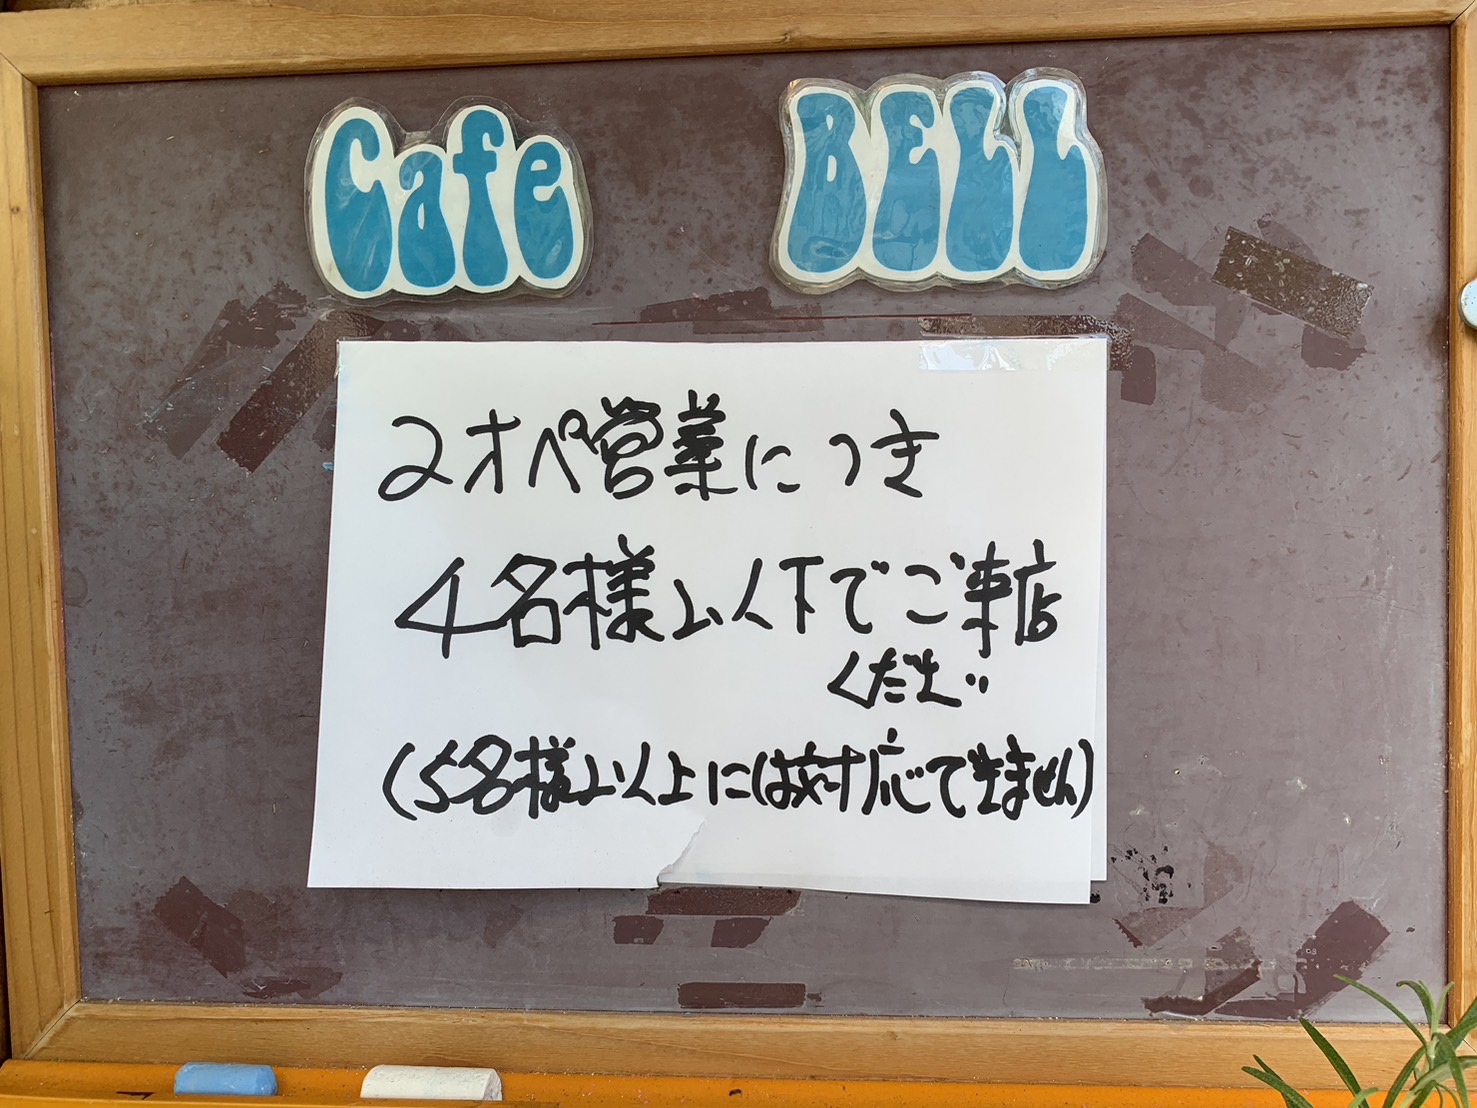 Cafe BELL
2オペ営業につき
4名様以下でご来店
ください
(5名様以上には対応できません)